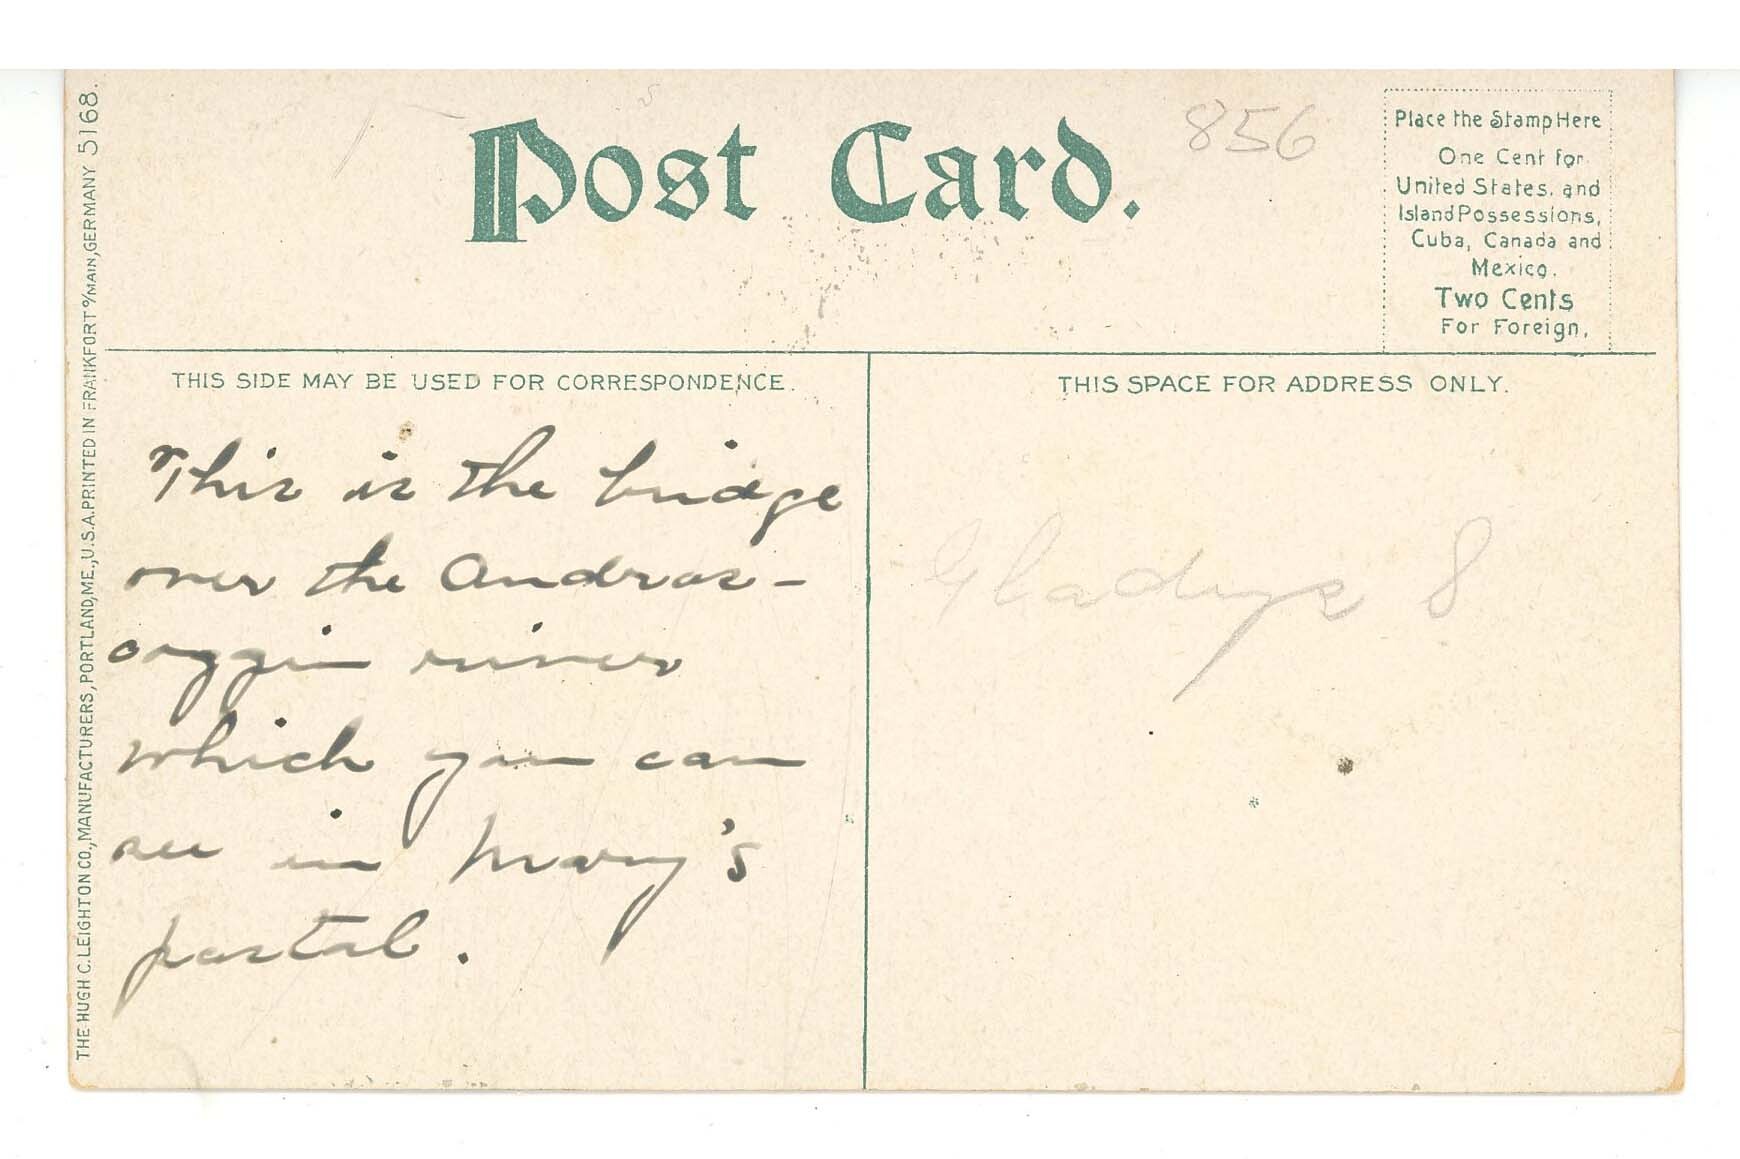 THE HUGH C. LEIGHTON CO., MANUFACTURERS, PORTLAND, ME., U.S.A. PRINTED IN FRANKFORT o/MAIN, GERMANY 5168.
Post Card.
856
Place the Stamp Here
One Cent for
United States, and
Island Possessions,
Cuba, Canada and
Mexico.
Two Cents
For Foreign.
THIS SIDE MAY BE USED FOR CORRESPONDENCE.
This is the bridge
over the Andros-
coggin river
which you can
see in Mary's
postal.
THIS SPACE FOR ADDRESS ONLY.
Gladys S